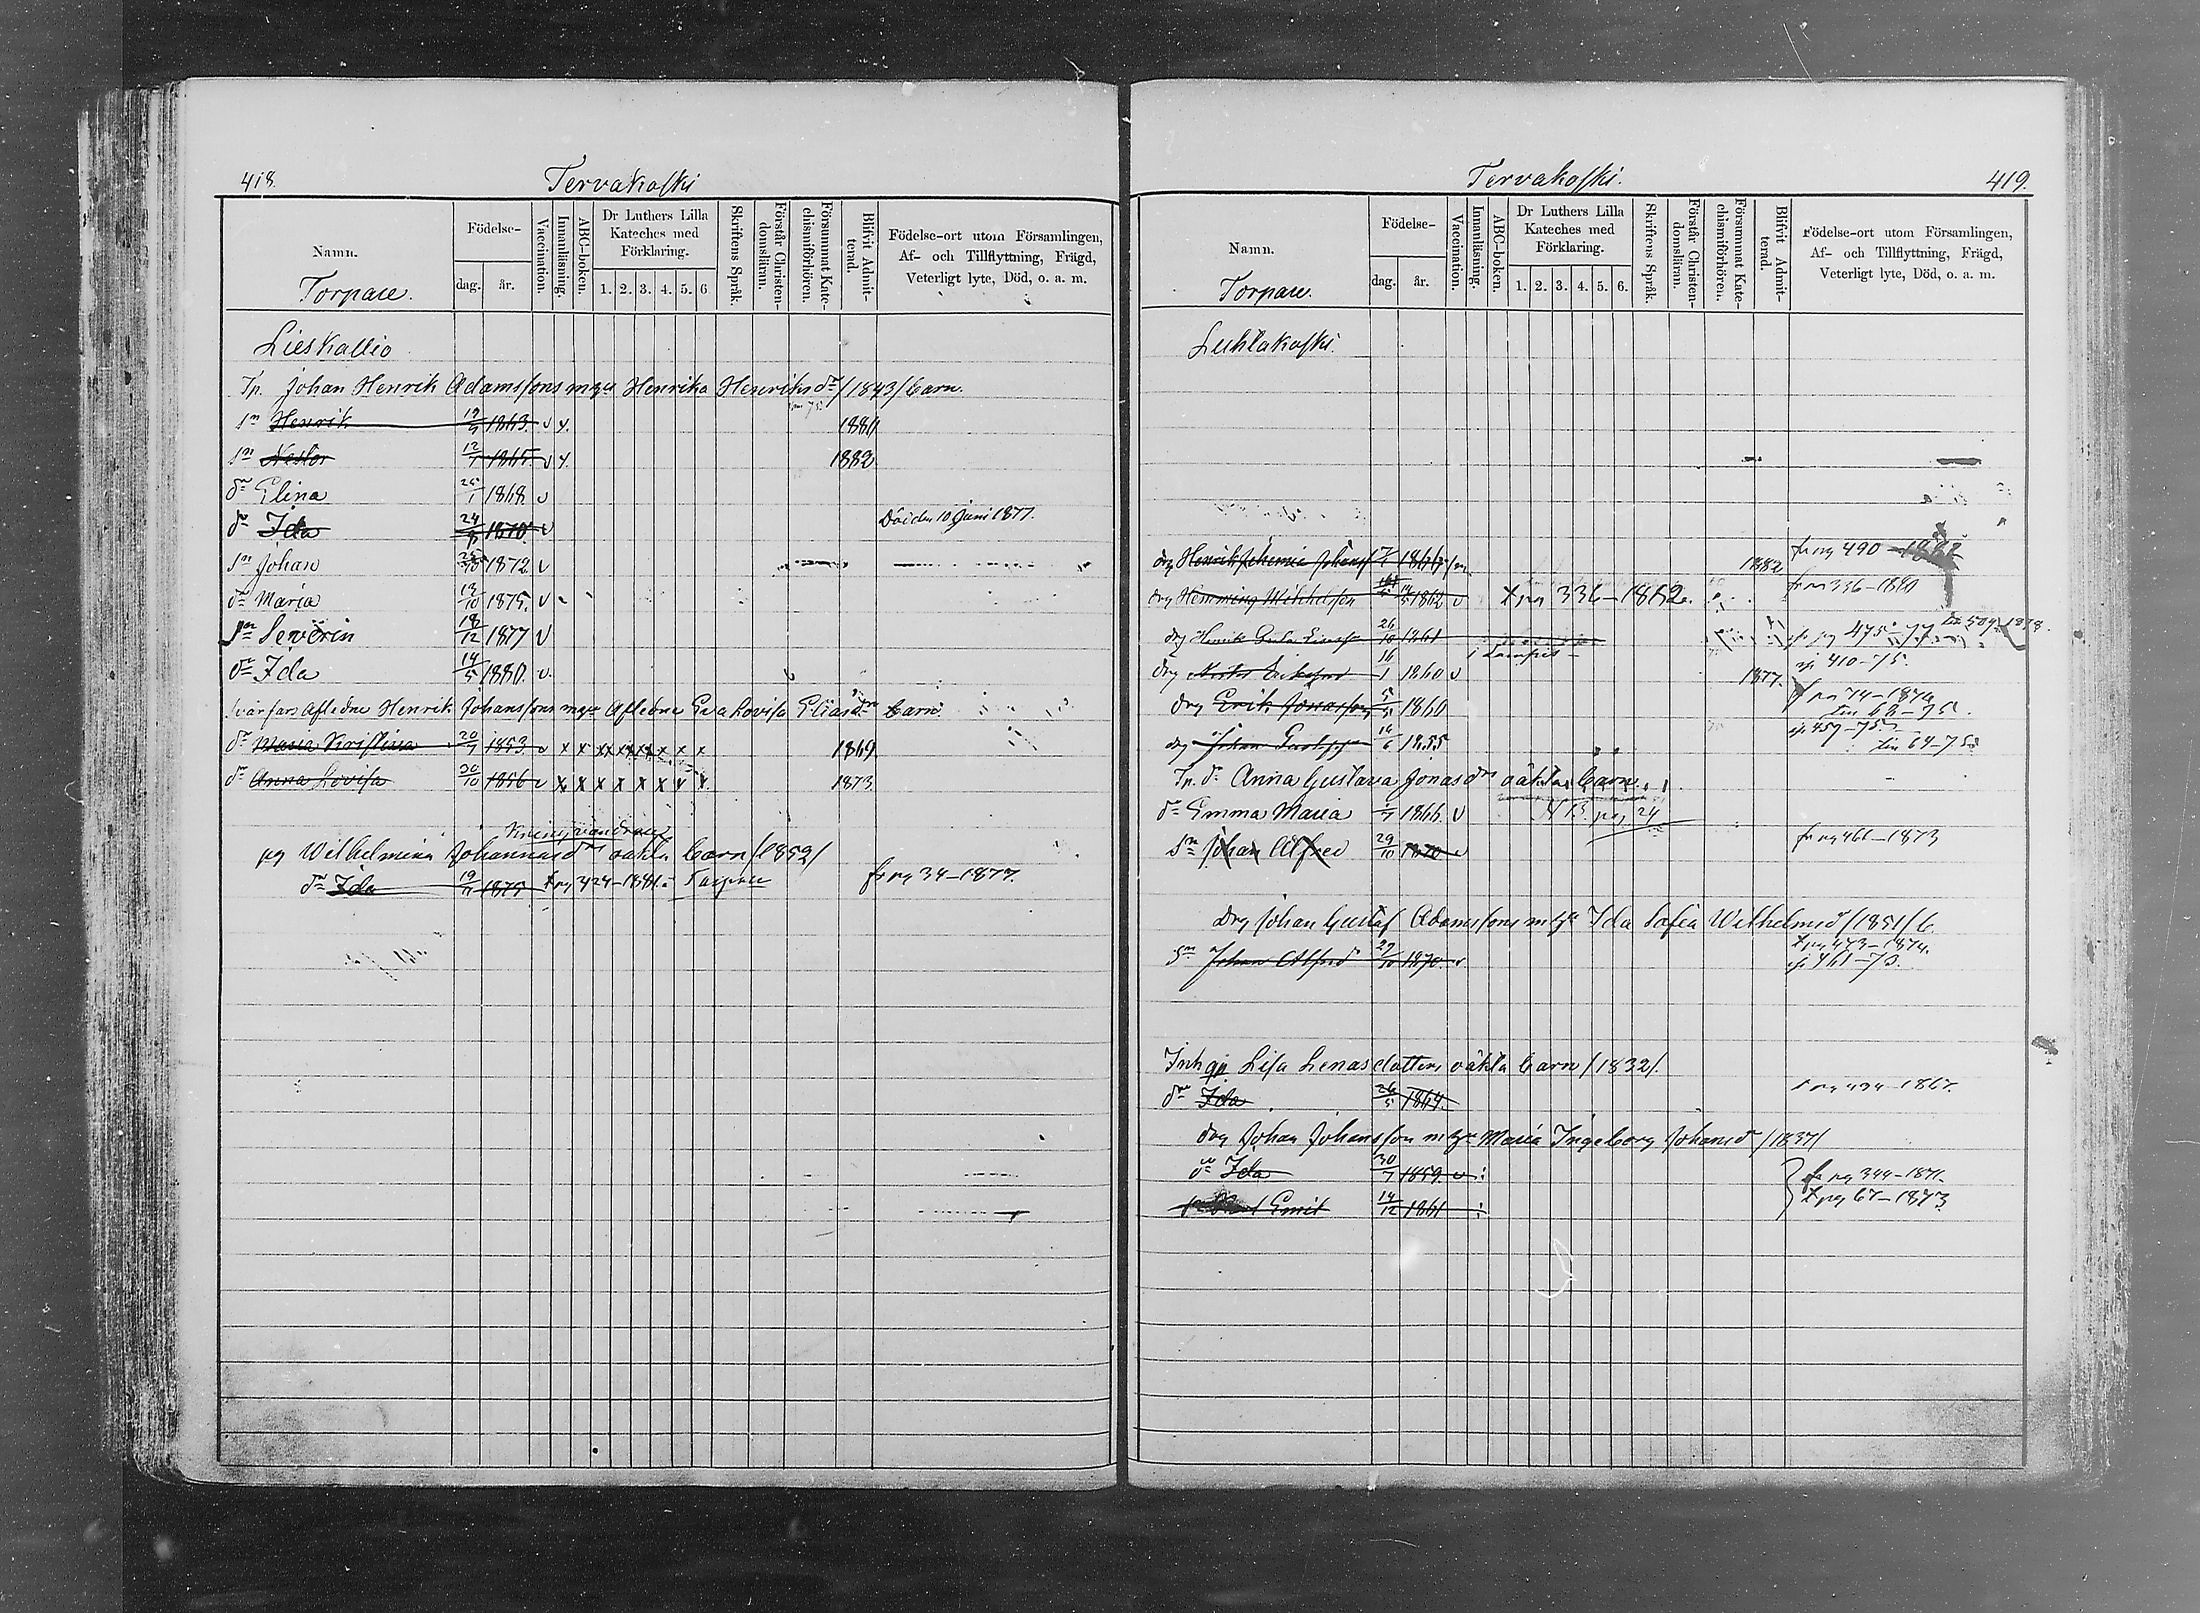 418.
Tervakoski
Namn.
Torpare.
Födelse-
dag.
år.
Vaccination.
Innanläsning.
ABC-boken.
Dr Luthers Lilla
Kateches med
Förklaring.
1. 2. 3. 4. 5. 6
Skriftens Språk.
Förstår Christen-
domsläran.
Försummat Kate-
chismiförhören.
Blifvit Admit-
terad.
Födelse-ort utom Församlingen,
Af- och Tillflyttning, Frägd,
Veterligt lyte, Död, o. a. m.
Lieskallio
Tp. Johan Henrik Adamssons m hu Henrika Henriksdr /1843/ barn.
sn Henrik 19/9 1863. v v. 1880
sn Nestor 12/7 1865. v v. 1882
dr Elina 25/1 1868 v
dr Ida 24/8 1870 v Död den 10 Juni 1877.
sn Johan 25/10 1872 v
dr Maria 13/10 1875. v
sn Severin 18/12 1877 v
dr Ida 14/5 1880. v.
Svärfars Afledne Henrik Johanssons m hu Afledne Eva Lovisa Eliasdr barn.
dr Maria Kristina 20/7 1853 v x x xx x x x x x 1869
dr Anna Lovisa 30/10 1856 v x x x x x x v x 1873
pg Wilhelmina Johannasdrs oäkta barn /1852/
dr Ida 19/11 1875 t pg 424-1881. fr pg 34-1877.
Tervakoski.
419.
Namn.
Torpare.
Födelse-
dag.
år.
Vaccination.
Innanläsning.
ABC-boken.
Dr Luthers Lilla
Kateches med
Förklaring.
1. 2. 3. 4. 5. 6.
Skriftens Språk.
Förstår Christen-
domsläran.
Försummat Kate-
chismiförhören.
Blifvit Admit-
terad.
Födelse-ort utom Församlingen,
Af- och Tillflyttning, Frägd,
Veterligt lyte, Död, o. a. m.
Luhtakoski.
drg Henrik Johans 1866 1882 fr pg 490-1882
drg Hemming 1862 v t pg 336-1882. fr pg 336-1880
drg Henrik 26/10 1861 475-77
drg Erikson 16/1 1860 v 1877. 410-75.
drg Erik Jonasson 1860 fr pg 74-1874
till 68-75.
drg Johan 14/6 1855 457-75
till 64-75
Tp. dr Anna Gustava Jonasdrs oäkta barn.
dr Emma Maria 1866. v NB. pag 24
sn Johan Alfred 29/10 1870 v fr pg 461-1873
drg Johan Gustaf Adamssons m hu Ida Sofia Wilhelmsd /1851/ b
sn Johan Alfred 29/10 1870. v t pg 473-1874.
461-73.
Inh qu Lisa Lenasdotters oäkta barn /1832/.
dr Ida 26/5 1864. pg 434-1867.
drg Johan Johansson m hu Maria Ingeborg Johansdr /1837/
dr Ida 30/7 1859. v fr pg 344-1871.
Emil 14/12 1861 t pg 67-1873